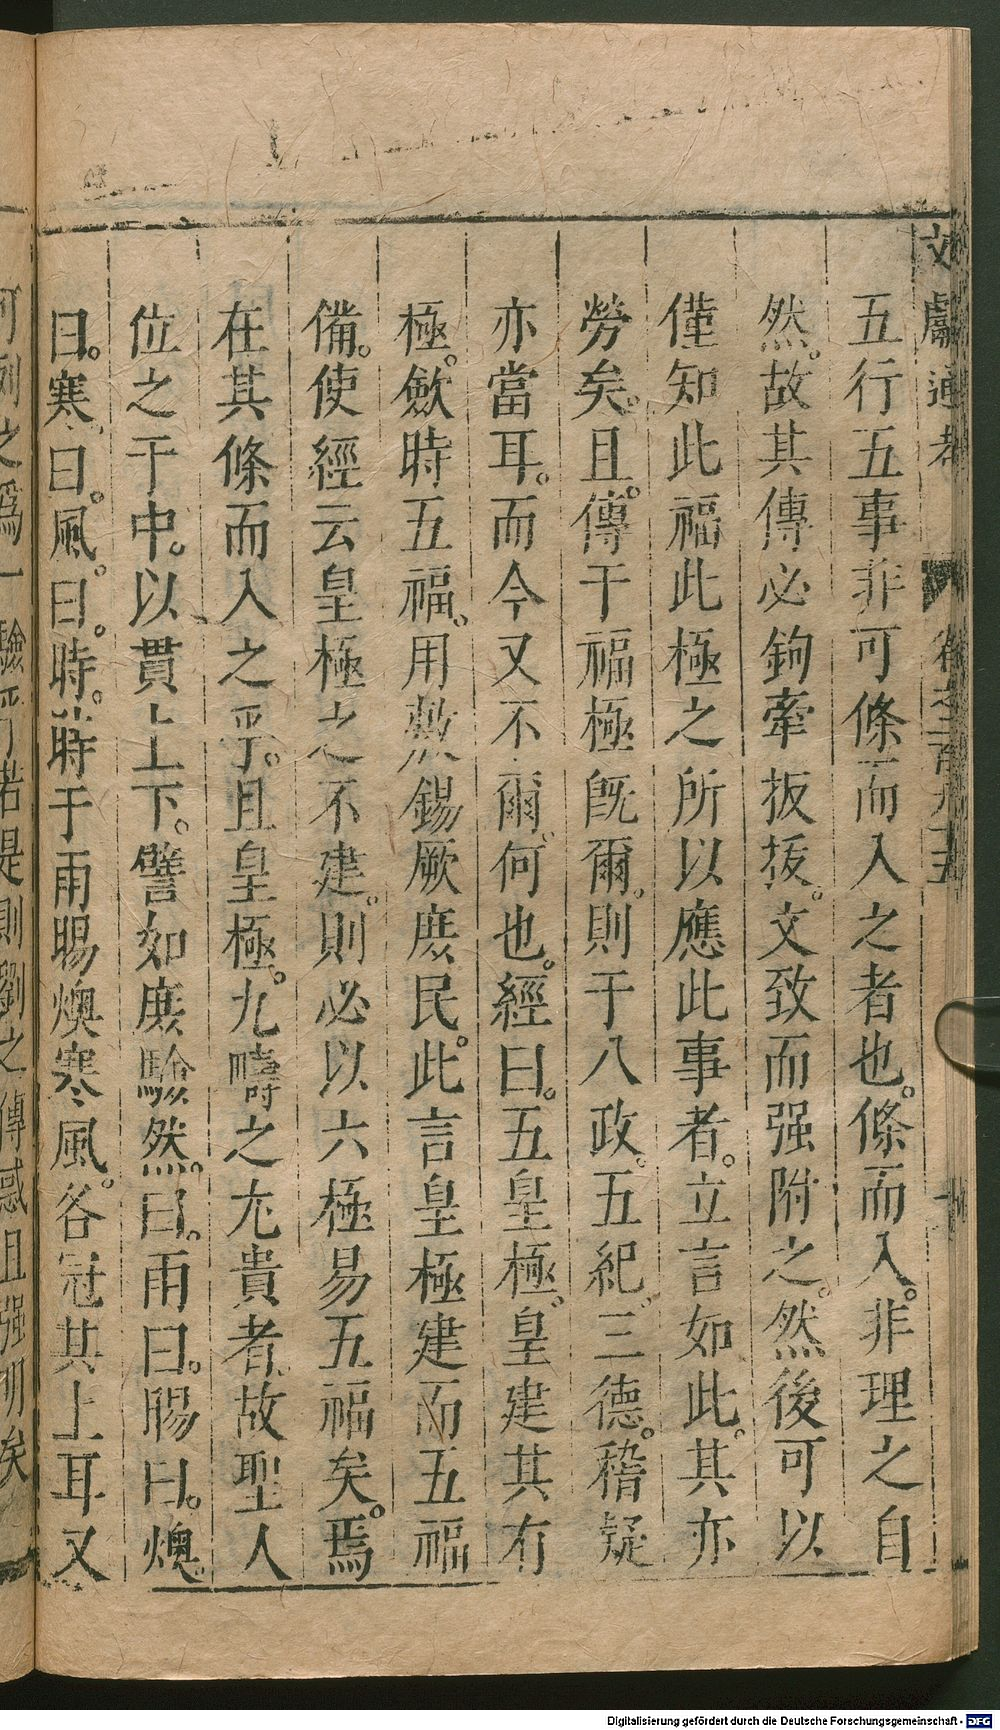 文獻通考
五行五事非可條而入之者也。條而入。非理之自
然。故其傳必鉤牽扳拔。文致而强附之。然後可以
僅知此福此極之所以應此事者。立言如此。其亦
勞矣。且。傳于福極既爾。則于八政。五紀三德。稽疑
亦當耳。而今又不爾。何也。經曰。五皇極。皇建其有
極。斂時五福。用敷錫厥庶民。此言皇極建而五福
備。使經云皇極之不建。則必以六極易五福矣。焉
在其條而入之乎。且皇極。九疇之尤貴者。故聖人
位之于中。以貫上下。譬如庶驗然。曰。雨曰。暘曰。燠。
曰。寒曰。風。曰。時。時于雨暘燠寒風。各冠其上耳又
Digitalisierung gefördert durch die Deutsche Forschungsgemeinschaft - DFG